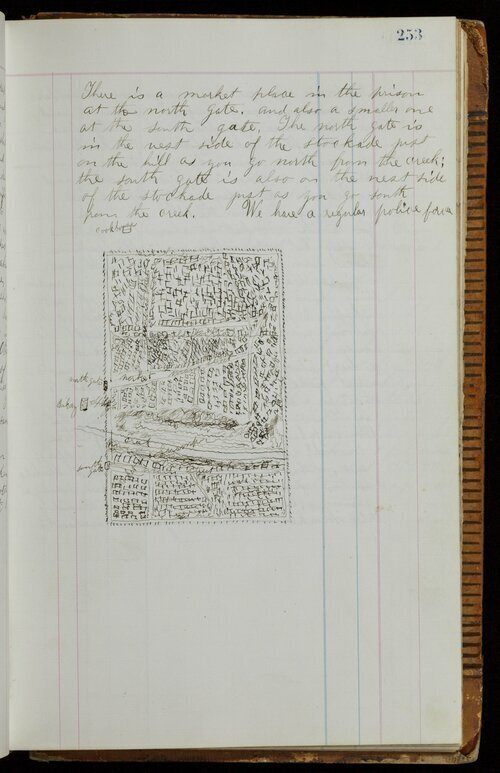 253
There is a market place in the prison
at the north gate. and also a smaller one
at the south gate. The north gate is
in the west side of the stockade just
on the hill as you go north from the creek;
the south gate is also on the west side
of the stockade just as you go south
from the creek. We have a regular police force
north gate
market